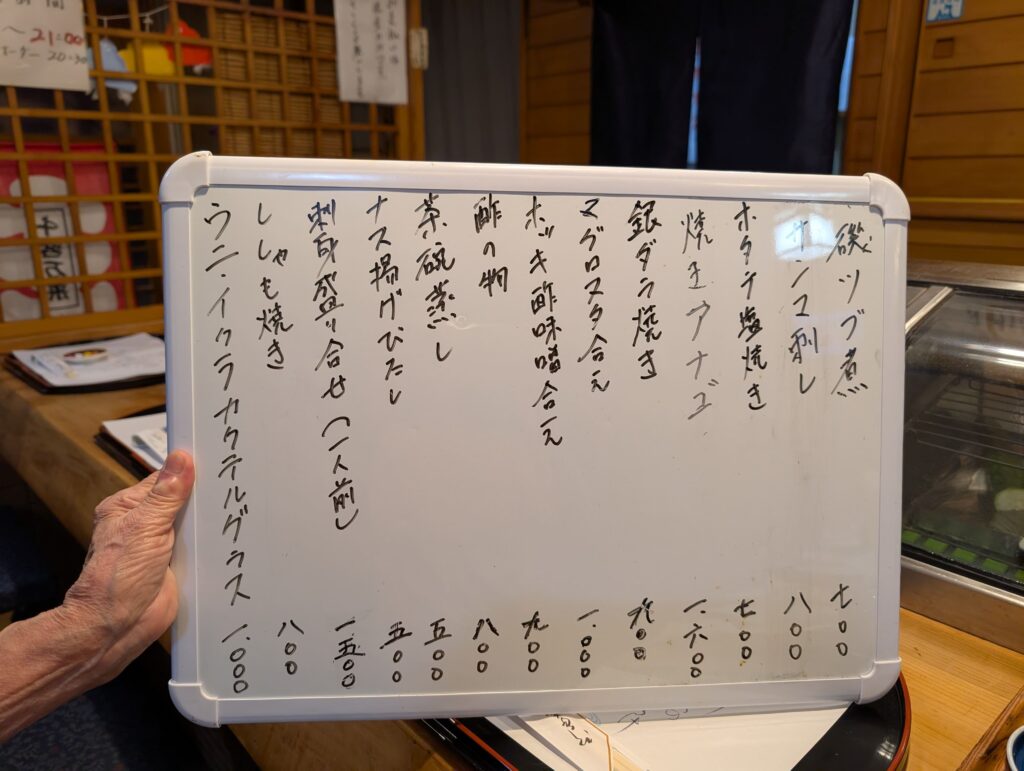 ～21:00
オーダー 20:30
磯ツブ煮 七〇〇
サンマ刺し 八〇〇
ホタテ塩焼き 七〇〇
焼キアナゴ 一.六〇〇
銀ダラ焼き 九〇〇
マグロヌタ合え 一.〇〇〇
ホッキ酢味噌合え 九〇〇
酢の物 八〇〇
茶碗蒸し 五〇〇
ナス揚げびたし 五〇〇
刺身盛り合せ（一人前） 一.五〇〇
ししゃも焼き 八〇〇
ウニ・イクラカクテルグラス 一.〇〇〇